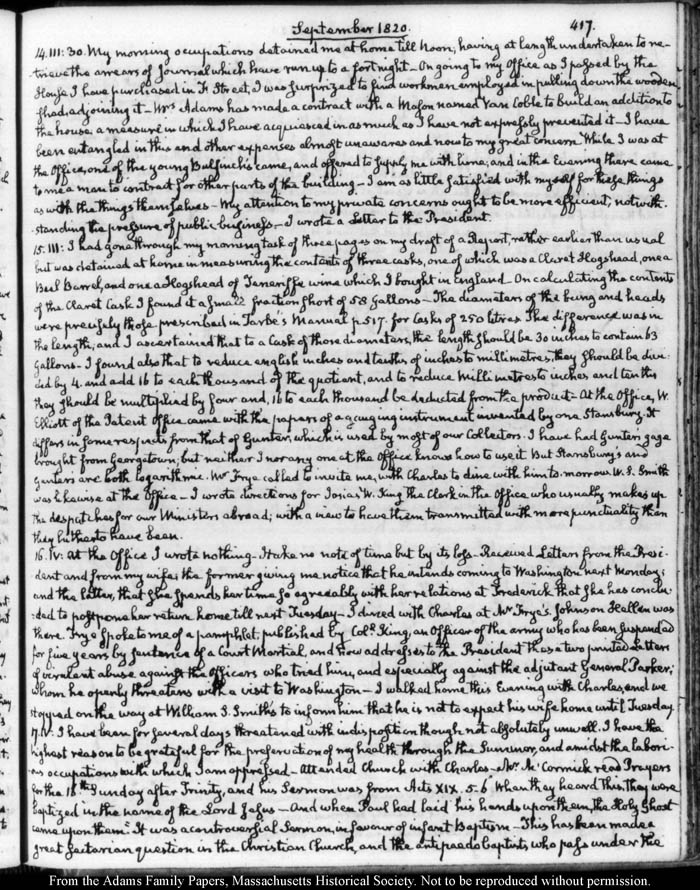 September 1820.
417.
14. III: 30. My morning occupations detained me at home till Noon; having at length undertaken to re-
trieve the arrears of Journal which have run up to a fortnight — On going to my Office as I passed by the
House I have purchased in F. Street, I was surprized to find workmen employed in pulling down the wooden
shed adjoining it — Mrs Adams has made a contract with a Mason named Van Coble to build an addition to
the house. a measure in which I have acquiesced in as much as I have not expressly prevented it — I have
been entangled in this and other expenses almost unawares and now to my great concern. While I was at
the Office, one of the young Bulfinchs came, and offered to supply me with lime; and in the Evening there came
to me a man to contract for other parts of the building — I am as little satisfied with myself for these things
as with the things themselves — My attention to my private concerns ought to be more efficient, notwith-
standing the pressure of public business — I wrote a Letter to the President.
15. III: I had gone through my morning task of three pages on my draft of a Report, rather earlier than usual
but was detained at home in measuring the contents of three casks, one of which was a Claret Hogshead, one a
Beer Barrel, and one a Hogshead of Teneriffe wine which I bought in England — On calculating the contents
of the Claret Cask I found it a small fraction short of 58 Gallons — The diameters of the bung and heads
were precisely those prescribed in Tarbé's Manual p. 517. for Casks of 250 litres. The difference was in
the length; and I ascertained that to a Cask of those diameters, the length should be 30 inches to contain 63
Gallons — I found also that to reduce english inches and tenths of inches to millimetres, they should be divi-
ded by 4. and add 16 to each thousand of the quotient, and to reduce millimetres to inches and tenths
they should be multiplied by four and, 16 to each thousand be deducted from the product — At the Office, W.
Elliott of the Patent Office came with the papers of a gauging instrument invented by one Stansbury. It
differs in some respects from that of Gunter, which is used by most of our Collectors. I have had Gunters gage
brought from Georgetown; but neither I nor any one at the Office knows how to use it. But Stansbury's and
Gunters are both logarithmic. Mr Frye called to invite me, with Charles to dine with him to-morrow. W. S. Smith
was likewise at the Office — I wrote directions for Josias W. King the Clerk in the Office who usually makes up
the despatches for our Ministers abroad; with a view to have them transmitted with more punctuality than
they hitherto have been.
16. IV: At the Office I wrote nothing — I take no note of time but by its loss — Received Letters from the Presi-
dent and from my wife; the former giving me notice that he intends coming to Washington next Monday;
and the latter, that she spends her time so agreeably with her relations at Frederick that she has conclu-
ded to postpone her return home till next Tuesday — I dined with Charles at Mr Frye's. Johnson Hellen was
there. Frye spoke to me of a pamphlet, published by Coll. King, an Officer of the army who has been suspended
for five years by sentence of a Court Martial, and now addresses to the President these two printed Letters
of virulent abuse against the Officers who tried him, and especially against the adjutant General Parker;
whom he openly threatens with a visit to Washington — I walked home this Evening with Charles, and we
stopped on the way at William S. Smith's to inform him that he is not to expect his wife home until Tuesday.
17. IV: I have been for several days threatened with indisposition though not absolutely unwell. I have the
highest reason to be grateful for the preservation of my health through the Summer, and amidst the labori-
ous occupations with which I am oppressed — Attended Church with Charles — Mr McCormick read Prayers
for the 16th Sunday after Trinity, and his Sermon was from Acts XIX. 5. 6 When they heard this, they were
baptized in the name of the Lord Jesus — And when Paul had laid his hands upon them, the Holy Ghost
came upon them. It was a controversial Sermon, in favour of infant Baptism — This has been made a
great sectarian question in the Christian Church, and the antipaedobaptists, who pass under the
From the Adams Family Papers, Massachusetts Historical Society. Not to be reproduced without permission.